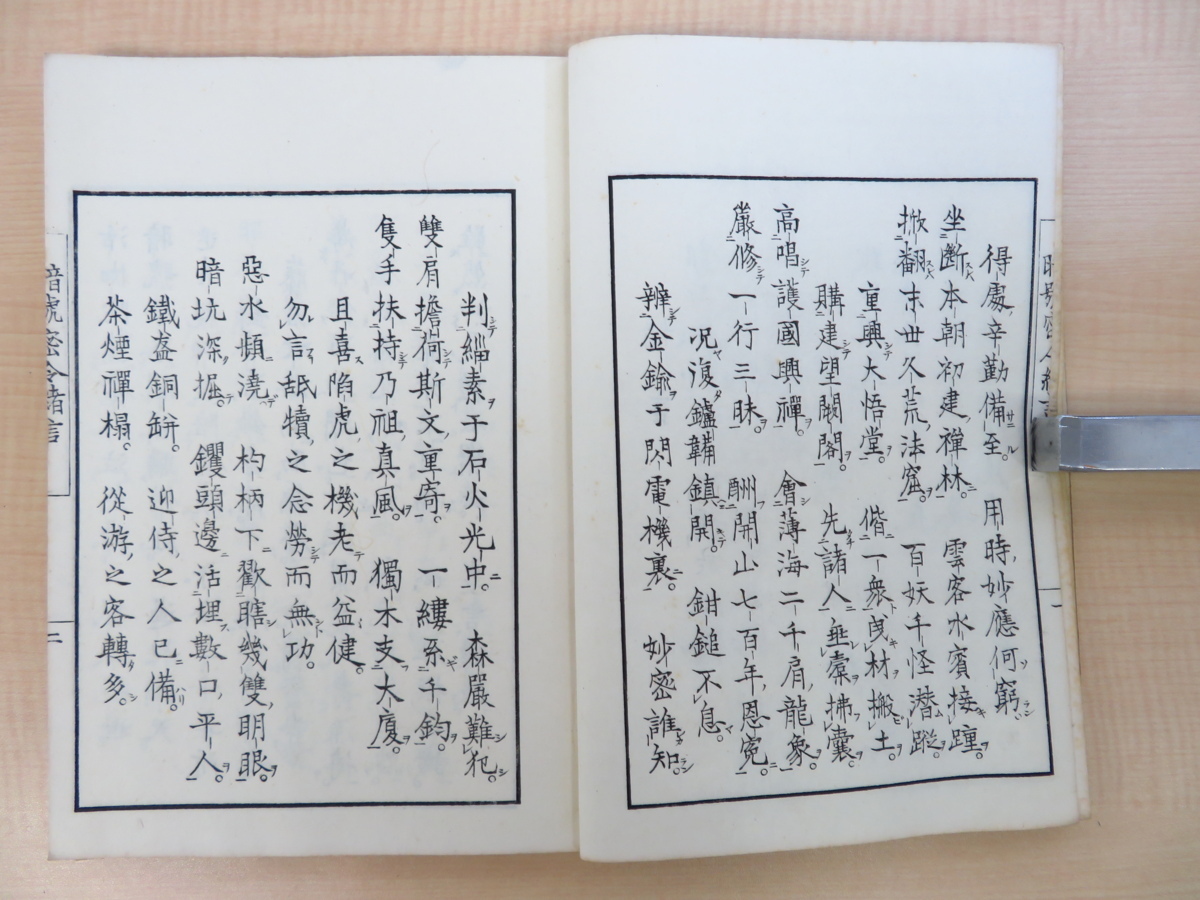 得處辛勤備至。 用時妙應何窮
坐斷本朝初建禪林。 雲客水賓接踵。
掀翻末世久荒法窟。 百妖千怪潛蹤。
重興大悟堂。 偕一衆曳材搬土。
購建望闕閣。 先諸人垂橐拂囊。
高唱護國興禪。 會薄海二千肩龍象。
嚴修一行三昧。 酬開山七百年恩寃。
況復鑪韛鎮開。 鉗鎚不息。
辨金鍮于閃電機裏。 妙密誰知。
判緇素于石火光中。 森嚴難犯。
雙肩擔荷斯文重寄。 一縷系千鈞。
隻手扶持乃祖真風。 獨木支大廈。
且喜陷虎之機老而益健。
勿言舐犢之念勞而無功。
惡水頻澆。 杓柄下歡瞎幾雙明眼。
暗坑深掘。 钁頭邊活埋數口平人。
鐵盔銅缾。 迎侍之人已備。
茶煙禪榻。 從游之客轉多。
暗號密令緒言
二